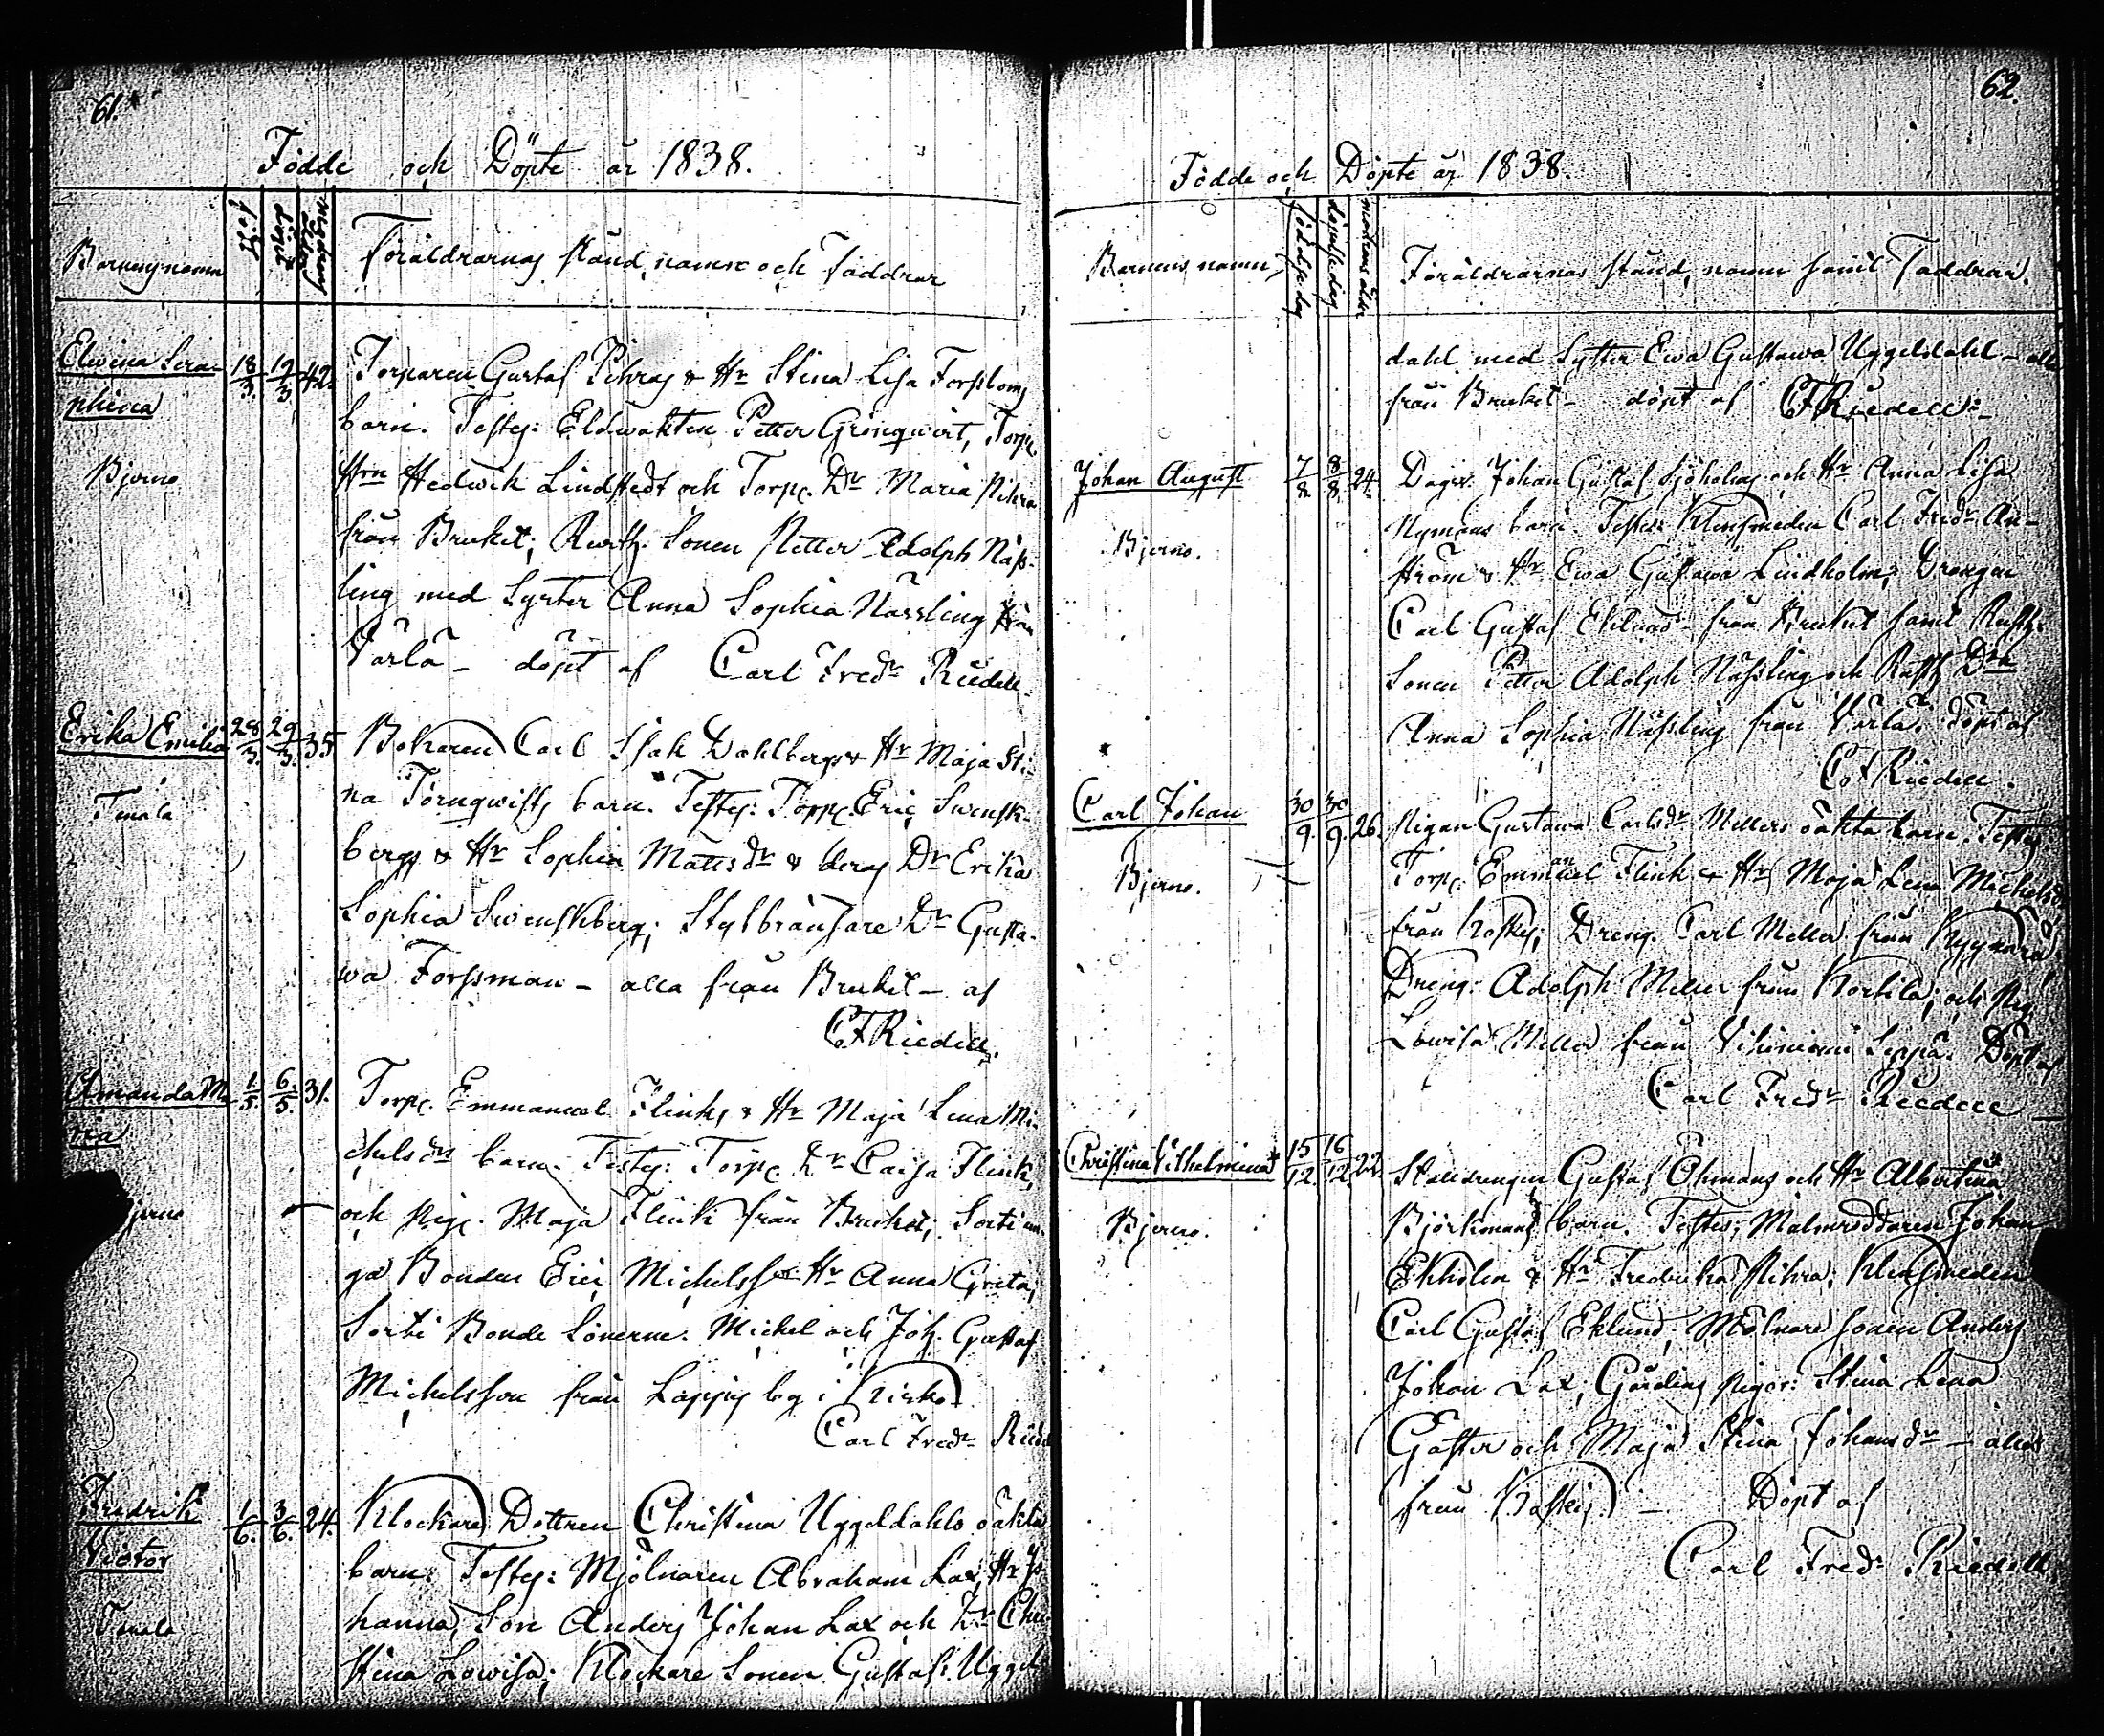 61.
Födde och Döpte år 1838.
Barnens namn
född
döpt
Föräldrarnas stånd, namn och Faddrar
Elwina Sera-
phina
Bjerno
18/3. 19/3 42.
Torparen Gustaf Pihras & Hr Stina Lisa Forsboms
barn. Testes: Eldwakten Petter Grönqwist, Torp.
Hrn Hedwik Lindstedt och Torp. Dr Maria Pihra
från Bruket; Rusth. Sonen Petter Adolph Näss-
ling med Syster Anna Sophia Nässling från
Vårlå - döpt af Carl Fredr Riedell.
Erika Emilia
Tenala
28/3. 29/3. 35
Bokaren Carl Isak Dahlbergs & Hr Maja Sti-
na Törnqwists barn. Testes: Torp. Eric Swensk-
bergs & Hr Sophia Mattsdr & deras Dr Erika
Sophia Swenskberg; Stylbränsare Dr Gusta-
wa Forssman - alla från Bruket - af
CFRiedell.
Amanda Ma-
ria
1/5. 6/5. 31.
Torp. Emmanuel Flinks & Hr Maja Lena Mi-
chelsdrs barn. Testes: Torp. Dr Caisa Flink,
och Pig. Maja Flink från Bruket;
Bonden Eric Michelss Hr Anna Greta;
Bonde Sönerne. Michel och Joh. Gustaf
Michelsson från Lappis by i Kisko
Carl Fredr Riedell
Fredrik
Victor
Tenala
1/6. 3/6. 24.
Klockare Dottren Christina Uggeldahls oäkta
barn. Testes: Mjölnaren Abraham Lax, Hr Jo-
hanna, Son Anders Johan Lax och Dr Chri-
stina Lowisa; Klockare Sonen Gustaf Uggel-
62.
Födde och Döpte år 1838.
Barnens namn
födelsedag
döpelsedag
modrens ålder
Föräldrarnas stånd, namn samt Faddrar.
dahl med Syster Ewa Gustawa Uggeldahl - alla
från Bruket - döpt af CFRiedell.
Johan August
Bjerno.
7/8. 8/8. 24.
Dagsk. Johan Gustaf Sjöholms och Hr Anna Lisa
Nymans barn. Testes: Klensmeden Carl Fredr An-
ström & Hr Ewa Gustawa Lindholm; Drengen
Carl Gustaf Eklund - från Bruket samt Rusth.
Sonen Petter Adolph Nässling och Rusth Dtr
Anna Sophia Nässling från Vårlå. Döpt af
CFRiedell.
Carl Johan
Bjerno.
30/9. 30/9. 26.
Pigan Gustawa Carlsdr Mellers oäkta barn. Testes:
Torp. Emmanuel Flink & Hr Maja Lena Michelsdr
från Koskis; Dreng. Carl Meller från
Dreng. Adolph Meller från Kortila; och Pig.
Lowisa Meller från Döpt af
Carl Fredr Riedell
Christina Wilhelmina
Bjerno.
15/12. 16/12. 22
Stalldrengen Gustaf Öhmans och Hr Albertina
Björkmans barn. Testes; Malmroddaren Johan
Ekholm & Hr Fredrika Pihra; Klensmeden
Carl Gustaf Eklund; Mölnare sonen Anders
Johan Lax; Gårdens Pigor: Stina Lena
Gäster och Maja Stina Johansdr - alla
från Koskis. - Döpt af
Carl Fredr Riedell